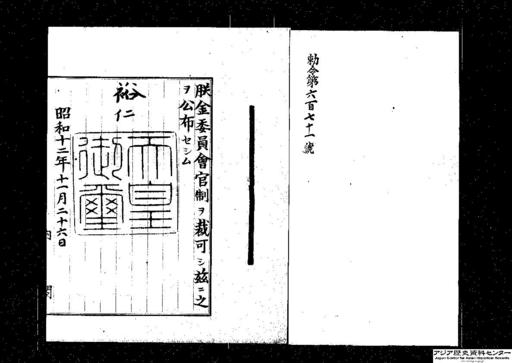 勅令第六百七十一號
朕金委員會官制ヲ裁可シ茲ニ之
ヲ公布セシム
裕仁
天皇
御璽
昭和十二年十一月二十六日
内閣
アジア歴史資料センター
Japan Center for Asian Historical Records